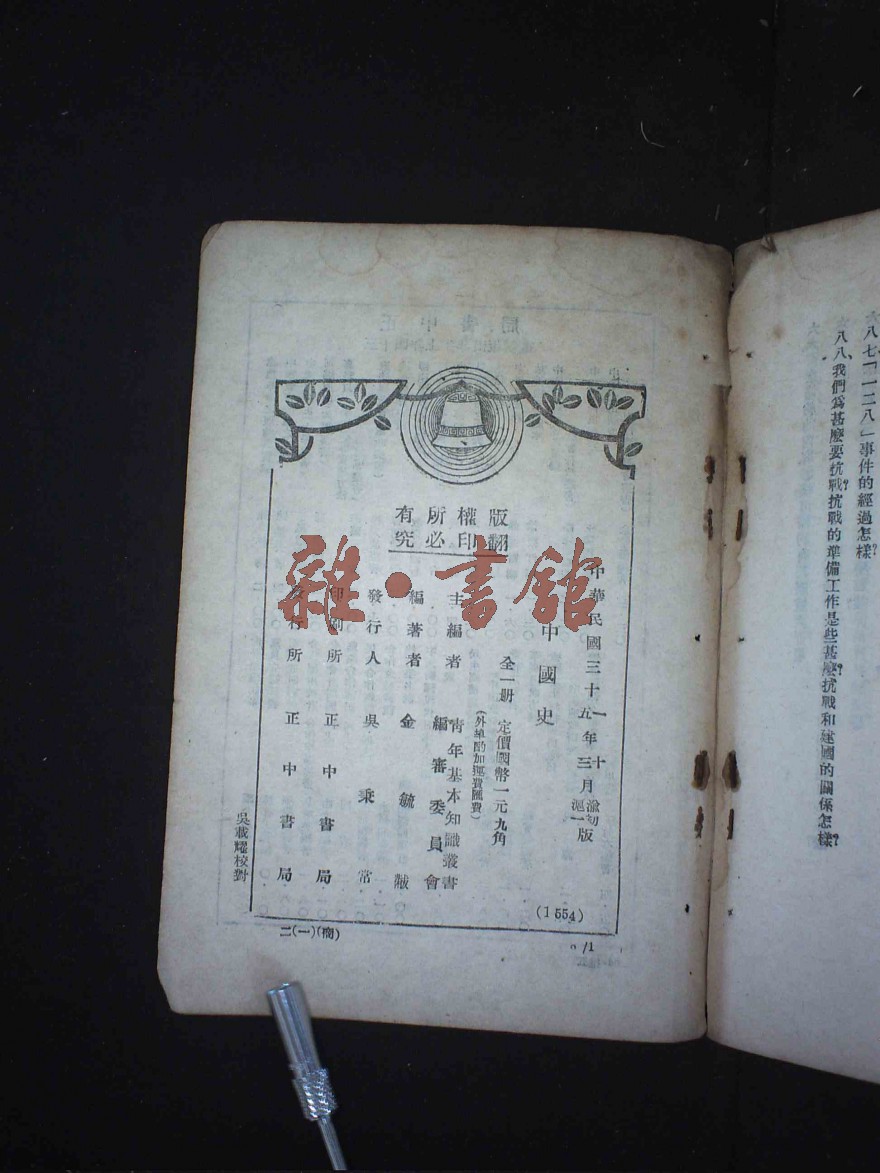 八七、「一二八」事件的經過怎樣？
八八、我們爲甚麼要抗戰？抗戰的準備工作是些甚麼？抗戰和建國的關係怎樣？
版權所有
翻印必究
中華民國三十一年十月渝初版
五年三月滬一版
中國史
全一册 定價國幣一元九角
(外埠酌加運費匯費)
主編者 青年基本知識叢書
編審委員會
編著者 金毓黻
發行人 吳秉常
印刷所 正中書局
發行所 正中書局
(1554)
吳載耀校對
二(一)(商)
/1
雜·書館
正中書局